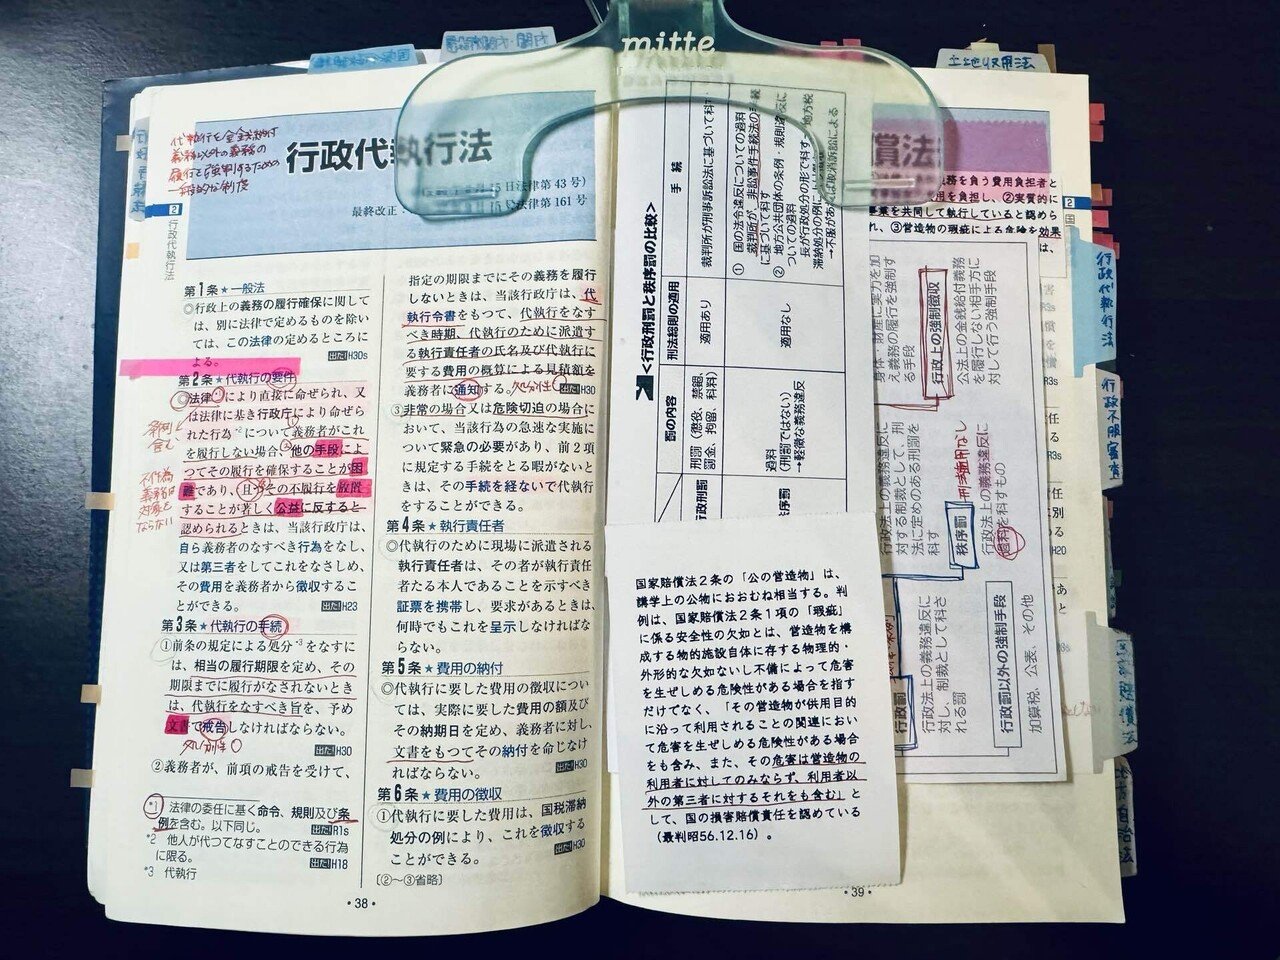 mitte
土地収用法
代執行を金銭納付
義務以外の義務の
履行を強制するための
一般的な制度
行政代執行法
15日法律第43号)
最終改正:
15号法律第161号
2
行政代執行法
第1条★一般法
◎行政上の義務の履行確保に関して
は、別に法律で定めるものを除い
ては、この法律の定めるところに
よる。
出た!H30s
第2条★代執行の要件
◎法律*1により直接に命ぜられ、又
は法律に基き行政庁により命ぜら
れた行為*2について義務者がこれ
を履行しない場合、他の手段によ
つてその履行を確保することが困
難であり、且つその不履行を放置
することが著しく公益に反すると
認められるときは、当該行政庁は、
自ら義務者のなすべき行為をなし、
又は第三者をしてこれをなさしめ、
その費用を義務者から徴収するこ
とができる。
出た!H23
条例
含む
不作為
義務は
対象と
ならない
第3条★代執行の手続
①前条の規定による処分*3をなすに
は、相当の履行期限を定め、その
期限までに履行がなされないとき
は、代執行をなすべき旨を、予め
文書で戒告しなければならない。
処分性○
出た!H30
②義務者が、前項の戒告を受けて、
*1 法律の委任に基く命令、規則及び条
例を含む。以下同じ。
出た!R1s
*2 他人が代つてなすことのできる行為
に限る。
出た!H18
*3 代執行
指定の期限までにその義務を履行
しないときは、当該行政庁は、代
執行令書をもつて、代執行をなす
べき時期、代執行のために派遣す
る執行責任者の氏名及び代執行に
要する費用の概算による見積額を
義務者に通知する。
処分性○
出た!H30
③非常の場合又は危険切迫の場合に
おいて、当該行為の急速な実施に
ついて緊急の必要があり、前2項
に規定する手続をとる暇がないと
きは、その手続を経ないで代執行
をすることができる。
第4条★執行責任者
◎代執行のために現場に派遣される
執行責任者は、その者が執行責任
者たる本人であることを示すべき
証票を携帯し、要求があるときは、
何時でもこれを呈示しなければな
らない。
第5条★費用の納付
◎代執行に要した費用の徴収につい
ては、実際に要した費用の額及び
その納期日を定め、義務者に対し、
文書をもつてその納付を命じなけ
ればならない。
出た!H30
第6条★費用の徴収
①代執行に要した費用は、国税滞納
処分の例により、これを徴収する
ことができる。
出た!H30
〔②〜③省略〕
・38・
<行政刑罰と秩序罰の比較>
罰の内容
刑法総則の適用
手続
行政刑罰
刑罰(懲役、禁錮、
罰金、拘留、科料)
適用あり
裁判所が刑事訴訟法に基づいて科す
秩序罰
過料
(刑罰ではない)
→軽微な義務違反
適用なし
① 国の法令違反についての過料
裁判所が、非訟事件手続法の手続
に基づいて科す
② 地方公共団体の条例・規則違反に
ついての過料
長が行政処分の形で科す
滞納処分の例に
地方税
→不服があれば取消訴訟による
償法
務を負う費用負担者と
用を負担し、②実質的に
事業を共同して執行していると認めら
れ、③営造物の瑕疵による危険を効果
2
国
身体・財産に実力を加
え義務の履行を強制す
る手段
行政上の強制徴収
公法上の金銭給付義務
を履行しない相手方に
対して行う強制手段
行政法上の義務違反に
対する制裁として、刑
法に定めのある刑罰を
科す
秩序罰
刑法適用なし
行政法上の義務違反に
過料を科すもの
行政罰
行政法上の義務違反に
対し、制裁として科さ
れる罰
行政罰以外の強制手段
加算税、公表、その他
国家賠償法2条の「公の営造物」は、
講学上の公物におおむね相当する。判
例は、国家賠償法2条1項の「瑕疵」
に係る安全性の欠如とは、営造物を構
成する物的施設自体に存する物理的・
外形的な欠如ないし不備によって危害
を生ぜしめる危険性がある場合を指す
だけでなく、「その営造物が供用目的
に沿って利用されることの関連におい
て危害を生ぜしめる危険性がある場合
をも含み、また、その危害は営造物の
利用者に対してのみならず、利用者以
外の第三者に対するそれをも含む」と
して、国の損害賠償責任を認めている
(最判昭56.12.16)。
・39・
行政代執行法
行政不服審査
地方自治法